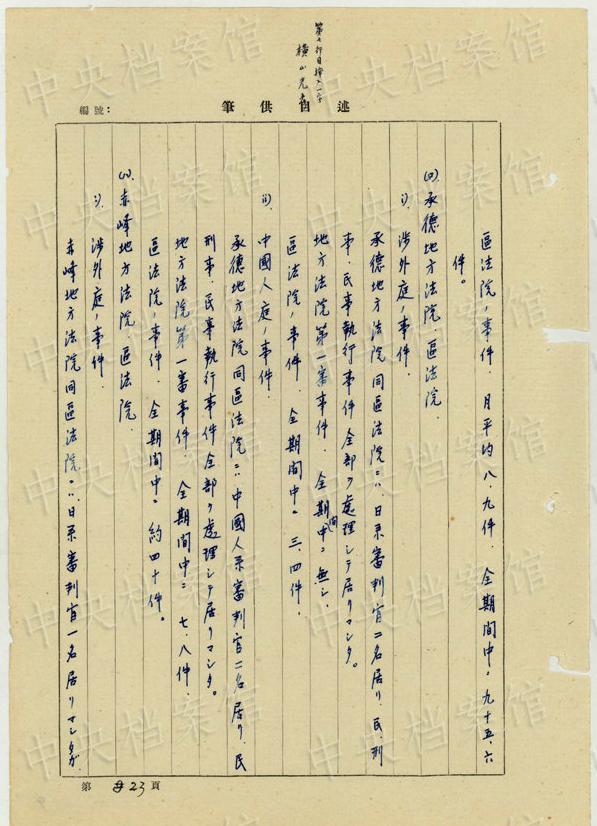 第七行目挿入一字
横山光彦
編號：
筆供自述
區法院ノ事件　月平均八、九件　全期間中ニ九十五、六
件。
(ロ)、承德地方法院、區法院、
i)、涉外庭ノ事件、
承德地方法院同區法院ニハ日系審判官二名居リ、民刑
事、民事執行事件全部ヲ處理シテ居リマシタ。
地方法院第一審事件、全期間中ニ無シ、
區法院ノ事件、全期間中ニ三、四件、
ii)、中國人庭ノ事件、
承德地方法院同區法院ニハ中國人系審判官二名居リ、民
刑事、民事執行事件全部ヲ處理シテ居リマシタ。
地方法院第一審事件、全期間中ニ七、八件、
區法院ノ事件、全期間中ニ約四十件。
(ハ)、赤峰地方法院、區法院、
i)、涉外庭ノ事件、
赤峰地方法院同區法院ニハ日系審判官一名居リマシタガ、
第 23 頁
中央档案馆